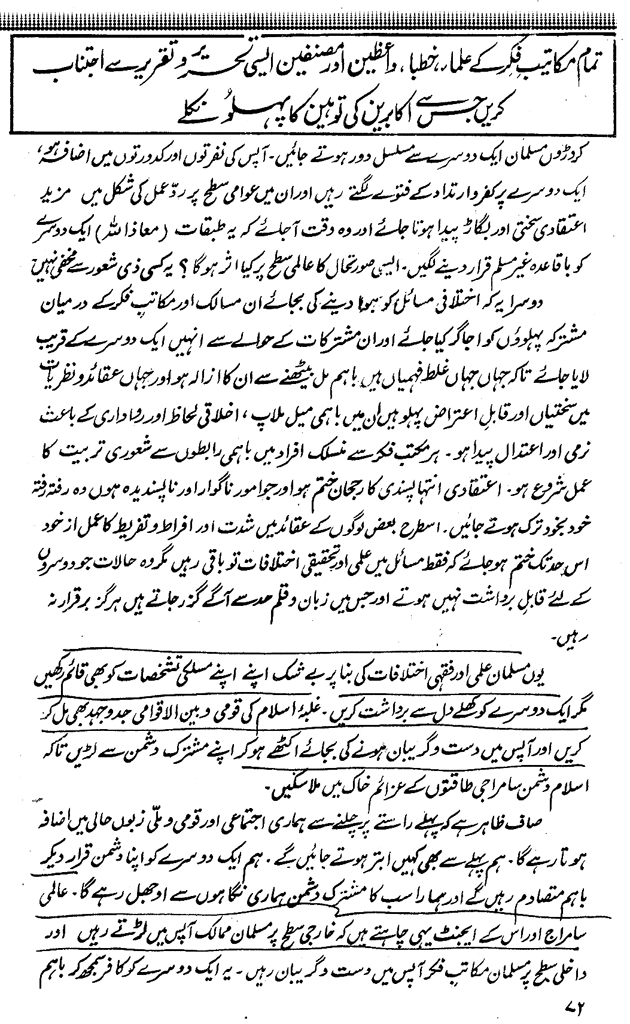 تمام مکاتیب فکر کے علماء، خطباء، واعظین اور مصنفین ایسی تحریر و تقریر سے اجتناب
کریں جس سے اکابرین کی توہین کا پہلو نکلے
کروڑوں مسلمان ایک دوسرے سے مسلسل دور ہوتے جائیں۔ آپس کی نفرتوں اور کدورتوں میں اضافہ ہو،
ایک دوسرے پر کفر و ارتداد کے فتوے لگتے رہیں اور ان میں عوامی سطح پر ردِّ عمل کی شکل میں مزید
اعتقادی سختی اور بگاڑ پیدا ہوتا جائے اور وہ وقت آجائے کہ یہ طبقات (معاذ اللہ) ایک دوسرے
کو باقاعدہ غیر مسلم قرار دینے لگیں۔ ایسی صورتحال کا عالمی سطح پر کیا اثر ہوگا؟ یہ کسی ذی شعور سے مخفی نہیں
دوسرا یہ کہ اختلافی مسائل کو ہوا دینے کی بجائے ان مسالک اور مکاتب فکر کے درمیان
مشترکہ پہلوؤں کو اجاگر کیا جائے اور ان مشترکات کے حوالے سے انہیں ایک دوسرے کے قریب
لایا جائے تاکہ جہاں جہاں غلط فہمیاں ہیں باہم مل بیٹھنے سے ان کا ازالہ ہو اور جہاں عقائد و نظریات
میں سختیاں اور قابل اعتراض پہلو ہیں ان میں باہمی میل ملاپ، اخلاقی لحاظ اور رواداری کے باعث
نرمی اور اعتدال پیدا ہو۔ ہر مکتب فکر سے منسلک افراد میں باہمی رابطوں سے شعوری تربیت کا
عمل شروع ہو۔ اعتقادی انتہا پسندی کا رجحان ختم ہو اور جو امور ناگوار اور ناپسندیدہ ہوں وہ رفتہ رفتہ
خود بخود ترک ہوتے جائیں۔ اسطرح بعض لوگوں کے عقائد میں شدت اور افراط و تفریط کا عمل از خود
اس حد تک ختم ہو جائے کہ فقط مسائل میں علمی اور تحقیقی اختلافات تو باقی رہیں مگر وہ حالات جو دوسروں
کے لئے قابل برداشت نہیں ہوتے اور جس میں زبان و قلم حد سے آگے گزر جاتے ہیں ہرگز برقرار نہ
رہیں۔
یوں مسلمان علمی اور فقہی اختلافات کی بنا پر بے شک اپنے اپنے مسلکی تشخصات کو بھی قائم رکھیں
مگر ایک دوسرے کو کھلے دل سے برداشت کریں۔ غلبۂ اسلام کی قومی و بین الاقوامی جدوجہد بھی مل کر
کریں اور آپس میں دست و گریبان ہونے کی بجائے اکٹھے ہو کر اپنے مشترک دشمن سے لڑیں تاکہ
اسلام دشمن سامراجی طاقتوں کے عزائم خاک میں ملا سکیں۔
صاف ظاہر ہے کہ پہلے راستے پر چلنے سے ہماری اجتماعی اور قومی و ملّی زبوں حالی میں اضافہ
ہوتا رہے گا۔ ہم پہلے سے بھی کہیں ابتر ہوتے جائیں گے۔ ہم ایک دوسرے کو اپنا دشمن قرار دیکر
باہم متصادم رہیں گے اور ہمارا سب کا مشترک دشمن ہماری نگاہوں سے اوجھل رہے گا۔ عالمی
سامراج اور اس کے ایجنٹ یہی چاہتے ہیں کہ خارجی سطح پر مسلمان ممالک آپس میں لڑتے رہیں اور
داخلی سطح پر مسلمان مکاتب فکر آپس میں دست و گریبان رہیں۔ یہ ایک دوسرے کو کافر سمجھ کر باہم
۷۲